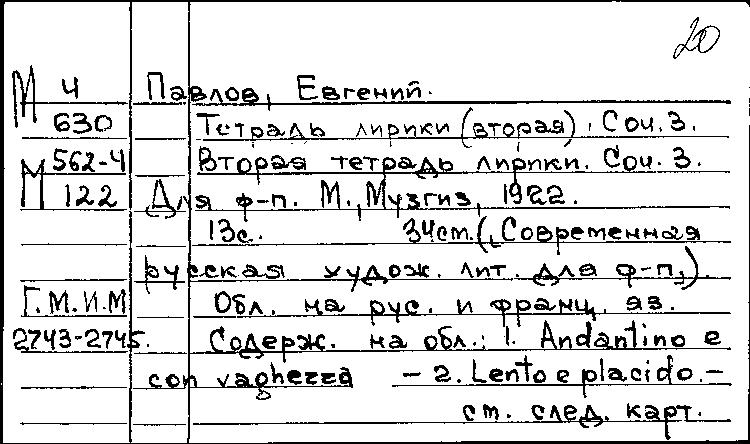 20
М Ч Павлов, Евгений.
630 Тетрадь лирики (вторая). Соч. 3.
М 562-4 Вторая тетрадь лирики. Соч. 3.
122 Для ф-п. М., Музгиз, 1922.
13с. 34cm. („Современная
русская худож. лит. для ф-п„).
Г.М.И.М Обл. на рус. и франц. яз.
2743-2745. Содерж. на обл.: 1. Andantino e
con vaghezza – 2. Lento e placido. –
см. след. карт.